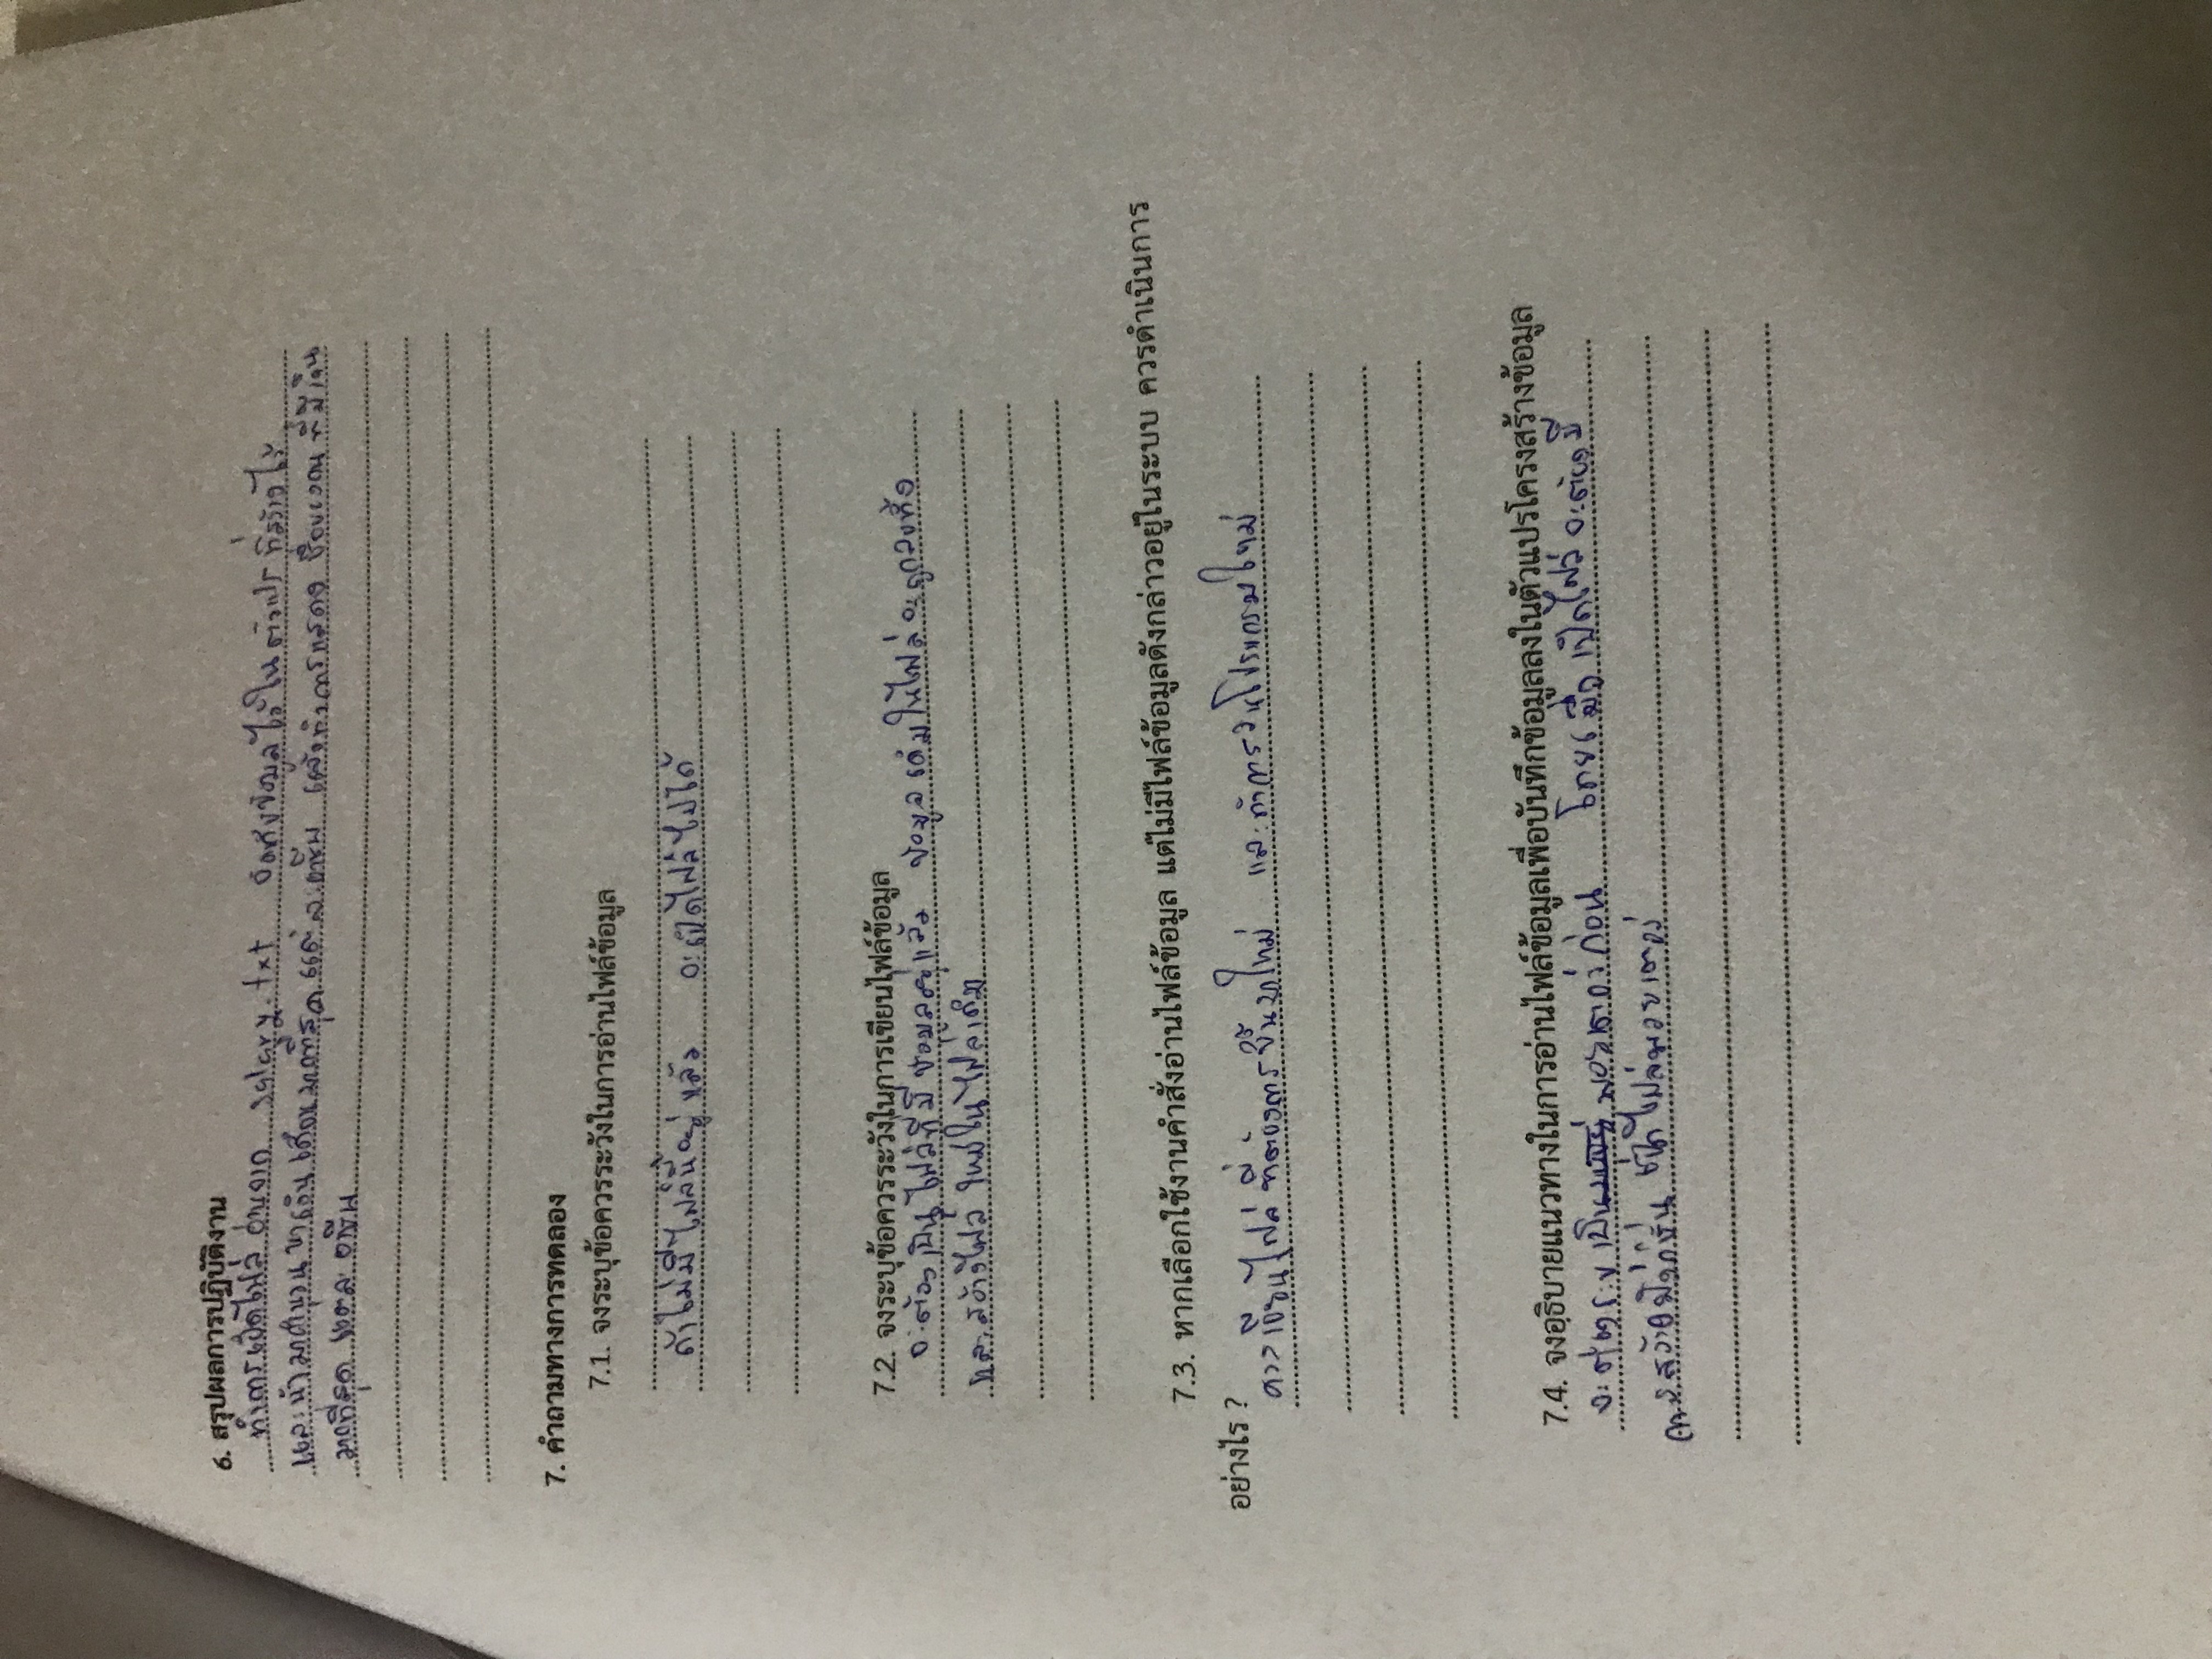 6. สรุปผลการปฏิบัติงาน
ทำการเปิดไฟล์ อ่านจาก salary.txt จัดเก็บข้อมูลไว้ใน ตัวแปร ที่สร้างไว้
และนำมาคำนวน หาเงินเดือนมากที่สุด แต่ละอาชีพ แล้วทำการแสดง ชื่อของคนที่มีเงิน
มากที่สุด แต่ละ อาชีพ
7. คำถามทางการทดลอง
7.1. จงระบุข้อควรระวังในการอ่านไฟล์ข้อมูล
ถ้าไม่มีไฟล์นี้อยู่แล้ว จะเปิดไฟล์ไม่ได้
7.2. จงระบุข้อควรระวังในการเขียนไฟล์ข้อมูล
จะต้องเป็นไฟล์ที่มีข้อมูลอยู่แล้ว ข้อมูลเดิมในไฟล์จะถูกลบทิ้ง
และสร้างไฟล์ใหม่ในไฟล์เดิม
7.3. หากเลือกใช้งานคำสั่งอ่านไฟล์ข้อมูล แต่ไม่มีไฟล์ข้อมูลดังกล่าวอยู่ในระบบ ควรดำเนินการ
อย่างไร ?
ควรเขียนไฟล์ที่ต้องการขึ้นมาใหม่ และทำการรันโปรแกรมใหม่
7.4. จงอธิบายแนวทางในการอ่านไฟล์ข้อมูลเพื่อบันทึกข้อมูลลงในตัวแปรโครงสร้างข้อมูล
จะต้องระบุเป็น พอยเตอร์ก่อน โดยเมื่อเปิดไฟล์ จะต้องมี
การสร้างฟังก์ชั่น ไฟล์พอยเตอร์